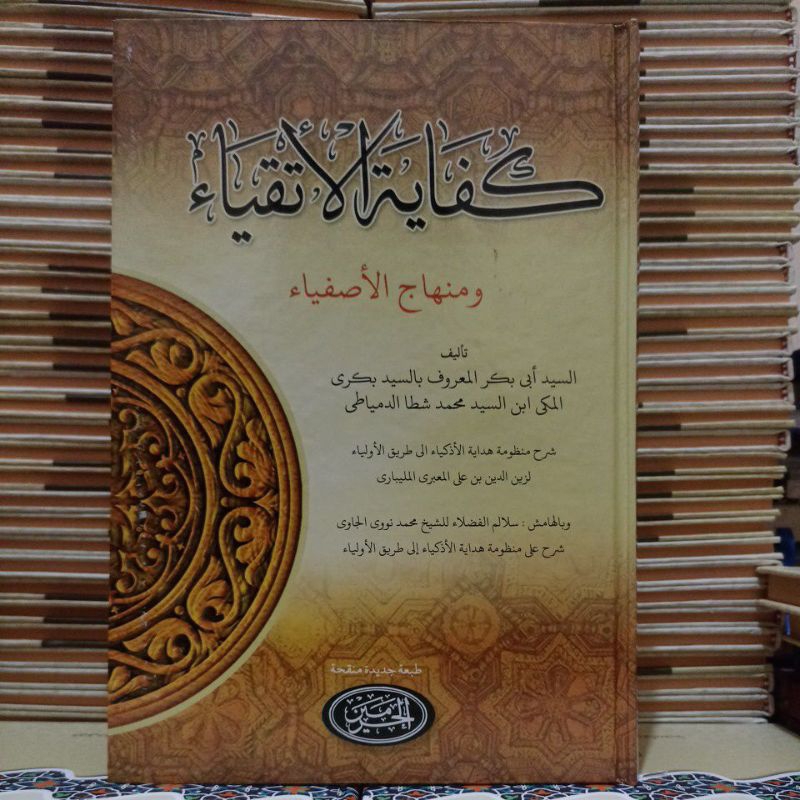 كفاية الأتقياء
ومنهاج الأصفياء
تأليف
السيد أبى بكر المعروف بالسيد بكرى
المكى ابن السيد محمد شطا الدمياطى
شرح منظومة هداية الأذكياء الى طريق الأولياء
لزين الدين بن على المعبرى المليبارى
وبالهامش : سلالم الفضلاء للشيخ محمد نووى الجاوى
شرح على منظومة هداية الأذكياء إلى طريق الأولياء
طبعة جديدة منقحة
الحرمين